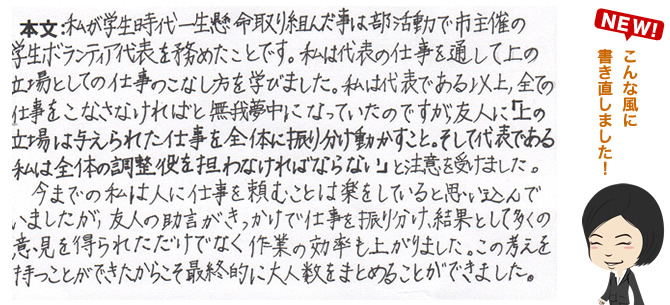 本文:私が学生時代一生懸命取り組んだ事は部活動で市主催の
学生ボランティア代表を務めたことです。私は代表の仕事を通して上の
立場としての仕事のこなし方を学びました。私は代表である以上、全ての
仕事をこなさなければと無我夢中になっていたのですが、友人に「上の
立場は与えられた仕事を全体に振り分け動かすこと。そして代表である
私は全体の調整役を担わなければならない」と注意を受けました。
今までの私は人に仕事を頼むことは楽をしていると思い込んで
いましたが、友人の助言がきっかけで仕事を振り分け、結果として多くの
意見を得られただけでなく作業の効率も上がりました。この考えを
持つことができたからこそ最終的に大人数をまとめることができました。
NEW!
こんな風に
書き直しました!